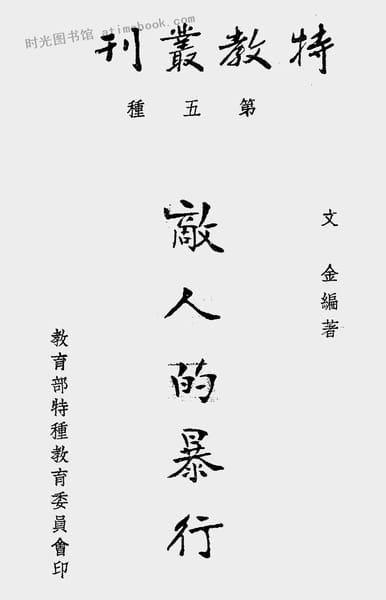 时光图书馆 atimebook.com
特教叢刊
第五種
文金編著
敵人的暴行
教育部特種教育委員會印